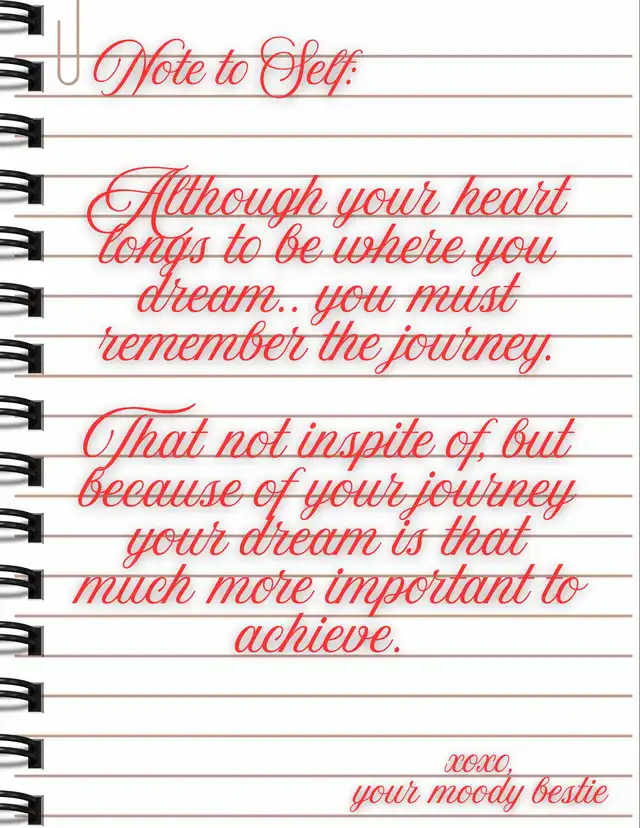 Note to Self:
Although your heart
longs to be where you
dream.. you must
remember the journey.
That not inspite of, but
because of your journey
your dream is that
much more important to
achieve.
xoxo,
your moody bestie